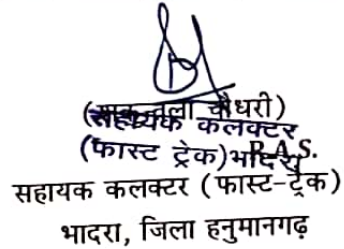 (शकुन्तला चौधरी)
सहायक कलक्टर
R.A.S.
(फास्ट ट्रेक) भादरा
सहायक कलक्टर (फास्ट-ट्रेक)
भादरा, जिला हनुमानगढ़